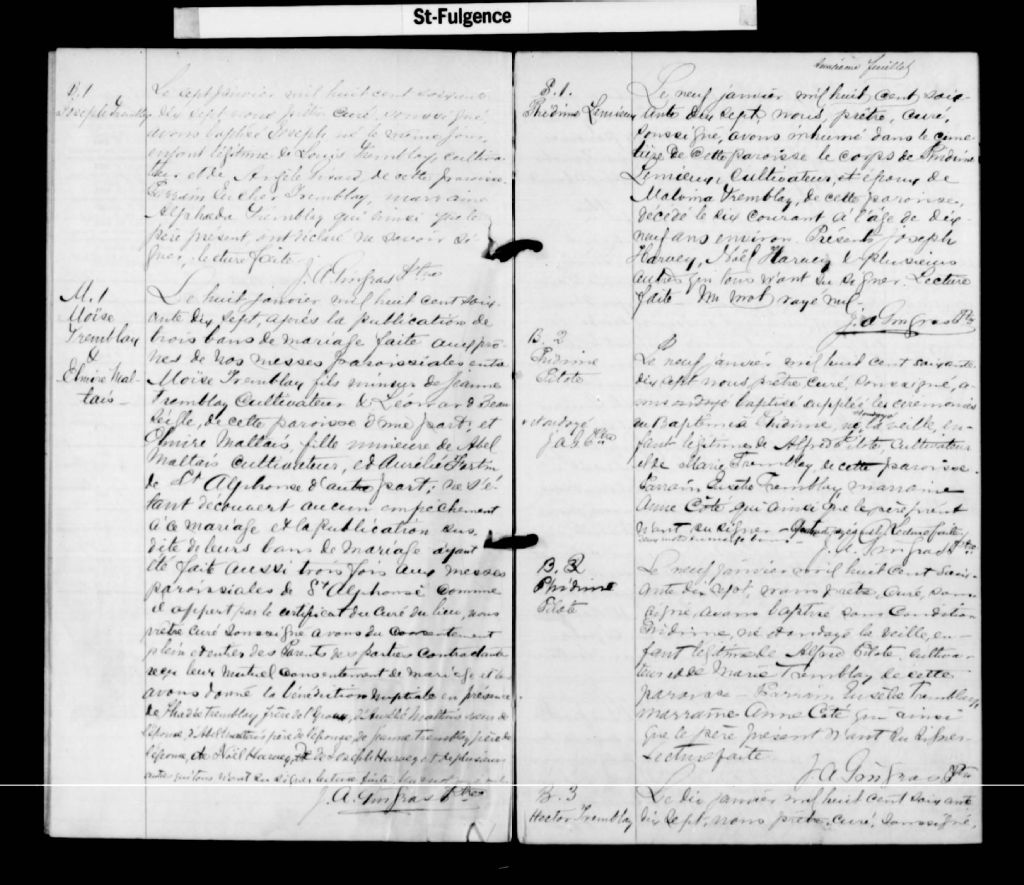 St-Fulgence
B.1
Joseph Tremblay
Le sept janvier mil huit cent soixante
dix sept nous prêtre curé soussigné
avons baptisé Joseph né le même jour,
enfant légitime de Louis Tremblay cultiva-
teur et de Angèle Simard de cette paroisse.
Parrain Tremblay, marraine
Alpheda Tremblay qui ainsi que le
père présent, ont déclaré ne savoir si-
gner, lecture faite.
J. A. Gingras Ptre
M.1
Moïse
Tremblay
&
Elmire Mal-
tais
Le huit janvier mil huit cent soix-
ante dix sept, après la publication de
trois bans de mariage faite aux prô-
nes de nos messes paroissiales entre
Moïse Tremblay fils mineur de Jeanne
Tremblay Cultivateur & Léonard Beau
de cette paroisse d'une part; et
Elmire Maltais, fille mineure de Abel
Maltais cultivateur, et d'Aurélie Fortin
de St Alphonse d'autre part; ne s'é-
tant découvert aucun empêchement
à ce mariage et la publication sus
dite de leurs bans de mariage ayant
été faite aussi trois fois aux messes
paroissiales de St Alphonse comme
il appert par le certificat du Curé du lieu, nous
prêtre curé soussigné avons du consentement
des Parents des parties contractantes
reçu leur mutuel consentement de mariage et leur
avons donné la bénédiction nuptiale en présence
de Tremblay frère de l'Epoux, Maltais
l'épouse, père de l'épouse, de Tremblay père de
l'époux, de Noël Harvey, de Joseph Harvey et de plusieurs
autres qui tous n'ont su signer lecture faite.
J. A. Gingras Ptre
feuillet
S.1.
Phidime Lemieux
Le neuf janvier mil huit cent soix-
ante dix sept, nous, prêtre, curé,
soussigné, avons inhumé dans le cime-
tière de cette paroisse le corps de Phidime
Lemieux, Cultivateur, et époux de
Malvina Tremblay, de cette paroisse,
décédé le dix courant à l'âge de dix-
neuf ans environ. Présents Joseph
Harvey, Noël Harvey & plusieurs
autres qui tous n'ont su signer. Lecture
faite. Un mot rayé nul.
J. A. Gingras Ptre
B. 2
Phidime
Pilote
+ et ondoyé
J A G Ptre
Le neuf janvier mil huit cent soixante
dix sept nous prêtre curé, soussigné, a-
vons baptisé suppléé les cérémonies
du Baptême à Phidime, né la veille, en-
fant légitime de Alfred Pilote, Cultivateur
et de Marie Tremblay, de cette paroisse.
Parrain Eusèbe Tremblay, marraine
Anne Côté qui ainsi que le père présent
n'ont su signer Lecture faite
J. A. Gingras Ptre
B. 3
Phidime
Pilote
Le neuf janvier mil huit cent soix-
ante dix sept, nous prêtre, curé, sous-
signé avons baptisé sous condition
Phidime, né et ondoyé la veille, en-
fant légitime de Alfred Pilote, cultiva-
teur et de Marie Tremblay de cette
paroisse - Parrain Eusèbe Tremblay,
marraine Anne Côté qui ainsi
que le père présent n'ont su signer
Lecture faite.
J A Gingras Ptre
B. 3
Hector Tremblay
Le dix janvier mil huit cent soix ante
dix sept, nous prêtre, curé, soussigné,